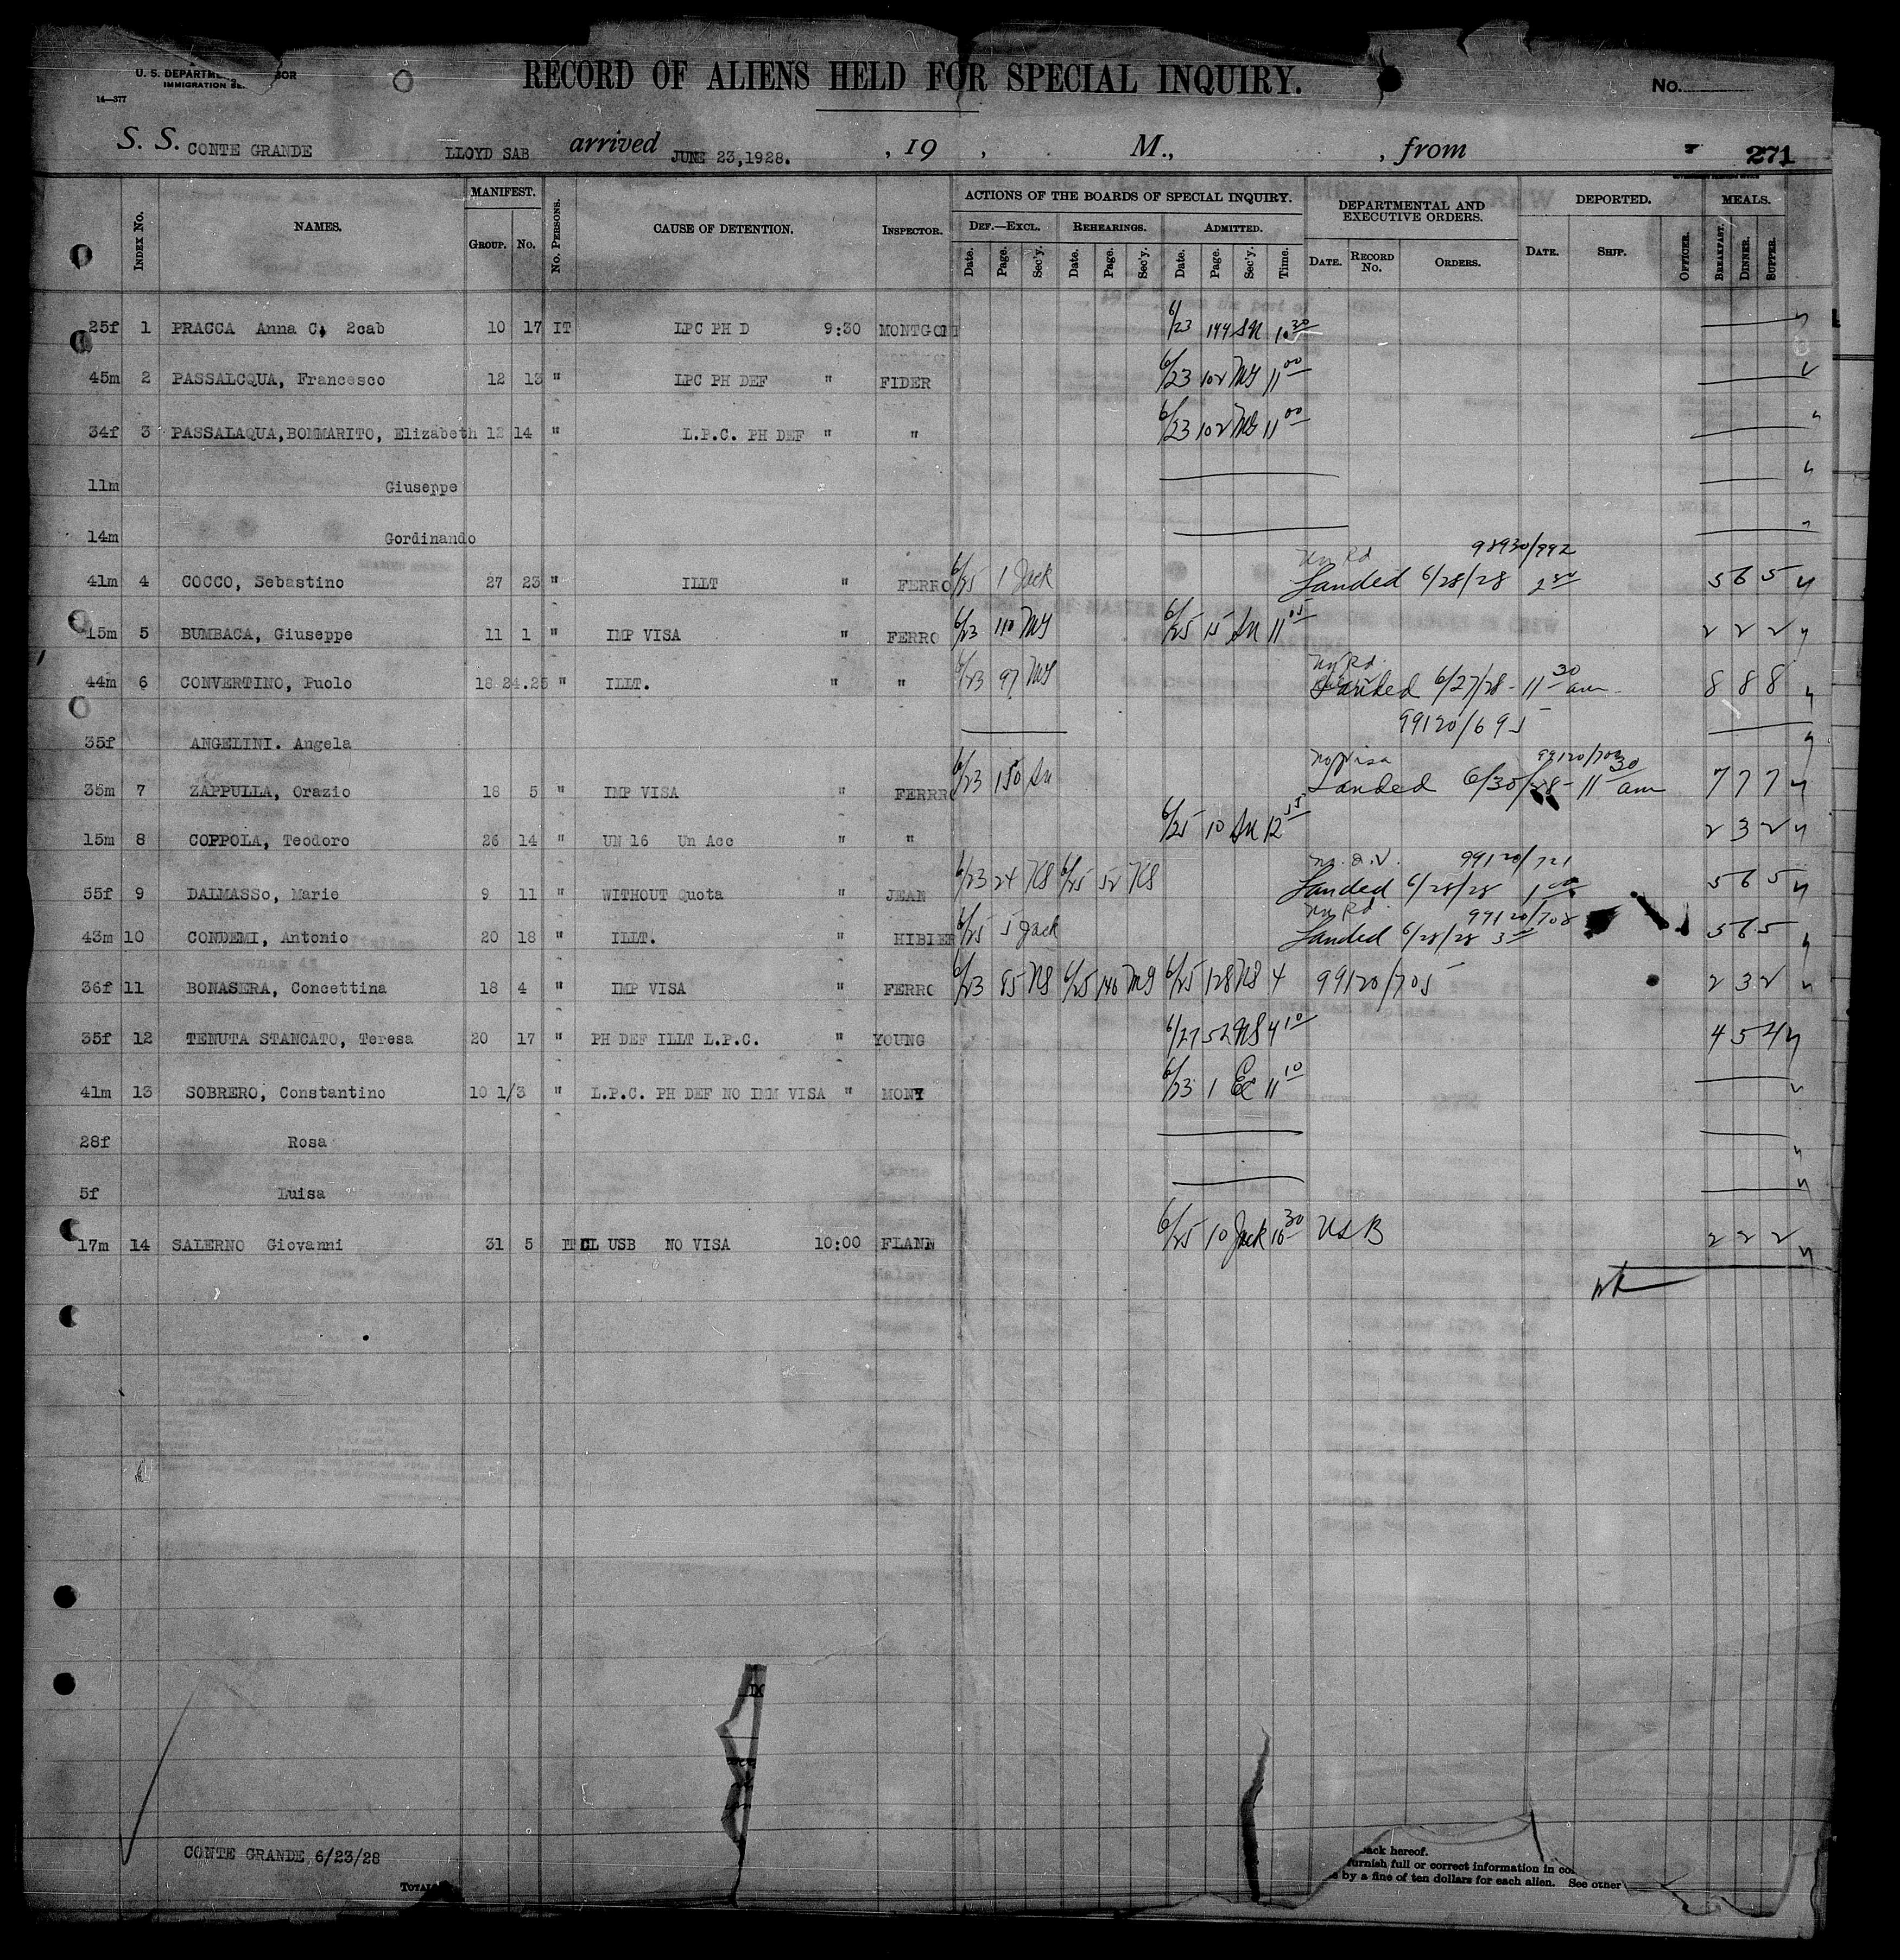 U. S. DEPARTME
IMMIGRATION SE
14—377
RECORD OF ALIENS HELD FOR SPECIAL INQUIRY.
No.
S. S. CONTE GRANDE LLOYD SAB arrived JUNE 23,1928. , 19 , M., , from 271
Index No. NAMES. MANIFEST. Group. No. No. Persons. CAUSE OF DETENTION. Inspector. ACTIONS OF THE BOARDS OF SPECIAL INQUIRY. DEPARTMENTAL AND EXECUTIVE ORDERS. DEPORTED. MEALS.
Def.—Excl. Rehearings. Admitted.
Date. Page. Sec'y. Date. Page. Sec'y. Date. Page. Sec'y. Time. Date. Record No. Orders. Date. Ship. Officer. Breakfast. Dinner. Supper.
25f 1 PRACCA Anna C. 2cab 10 17 IT LPC PH D 9:30 MONTGOM 6/23 144 SN 10 30
45m 2 PASSALCQUA, Francesco 12 13 " LPC PH DEF " FIDER 6/23 102 MG 11 00
34f 3 PASSALAQUA,BOMMARITO, Elizabeth 12 14 " L.P.C. PH DEF " " 6/23 102 MG 11 00
11m Giuseppe
14m Gordinando
98930/992
41m 4 COCCO, Sebastino 27 23 " ILLT " FERRO 6/25 1 Jack Landed 6/28/28 5 6 5
15m 5 BUMBACA, Giuseppe 11 1 " IMP VISA " FERRO 6/23 110 MG 6/25 15 SN 11 15 2 2 2
44m 6 CONVERTINO, Puolo 18 24.25 " ILLT. " " 6/23 97 MG Landed 6/27/28 - 11 30 am 8 8 8
99120/695
35f ANGELINI. Angela
no visa
35m 7 ZAPPULLA, Orazio 18 5 " IMP VISA " FERRRO 6/23 150 SN Landed 6/30/28 - 11 30 am 7 7 7
15m 8 COPPOLA, Teodoro 26 14 " UN 16 Un Acc " " 6/25 10 SN 12 2 3 2
99120/721
55f 9 DALMASSo, Marie 9 11 " WITHOUT Quota " JEAN 6/23 24 KS 6/25 52 KS Landed 6/28/28 1 00 5 6 5
99120/708
43m 10 CONDEMI, Antonio 20 18 " ILLT. " HIBIER 6/25 5 Jack Landed 6/28/28 5 6 5
36f 11 BONASERA, Concettina 18 4 " IMP VISA " FERRO 6/23 85 NS 6/25 146 MG 6/25 128 NS 4 99120/705 2 3 2
35f 12 TENUTA STANCATO, Teresa 20 17 " PH DEF ILLT L.P.C. " YOUNG 6/27 52 NS 4 10 4 5 4
41m 13 SOBRERO, Constantino 10 1/3 " L.P.C. PH DEF NO IMM VISA " MONY 6/23 1 EC 11 10
28f Rosa
5f Luisa
17m 14 SALERNO Giovanni 31 5 CL USB NO VISA 10:00 FLANN 6/25 10 Jack 10 30 USB 2 2 2
CONTE GRANDE 6/23/28
Total
back hereof.
furnish full or correct information in
by a fine of ten dollars for each alien. See other